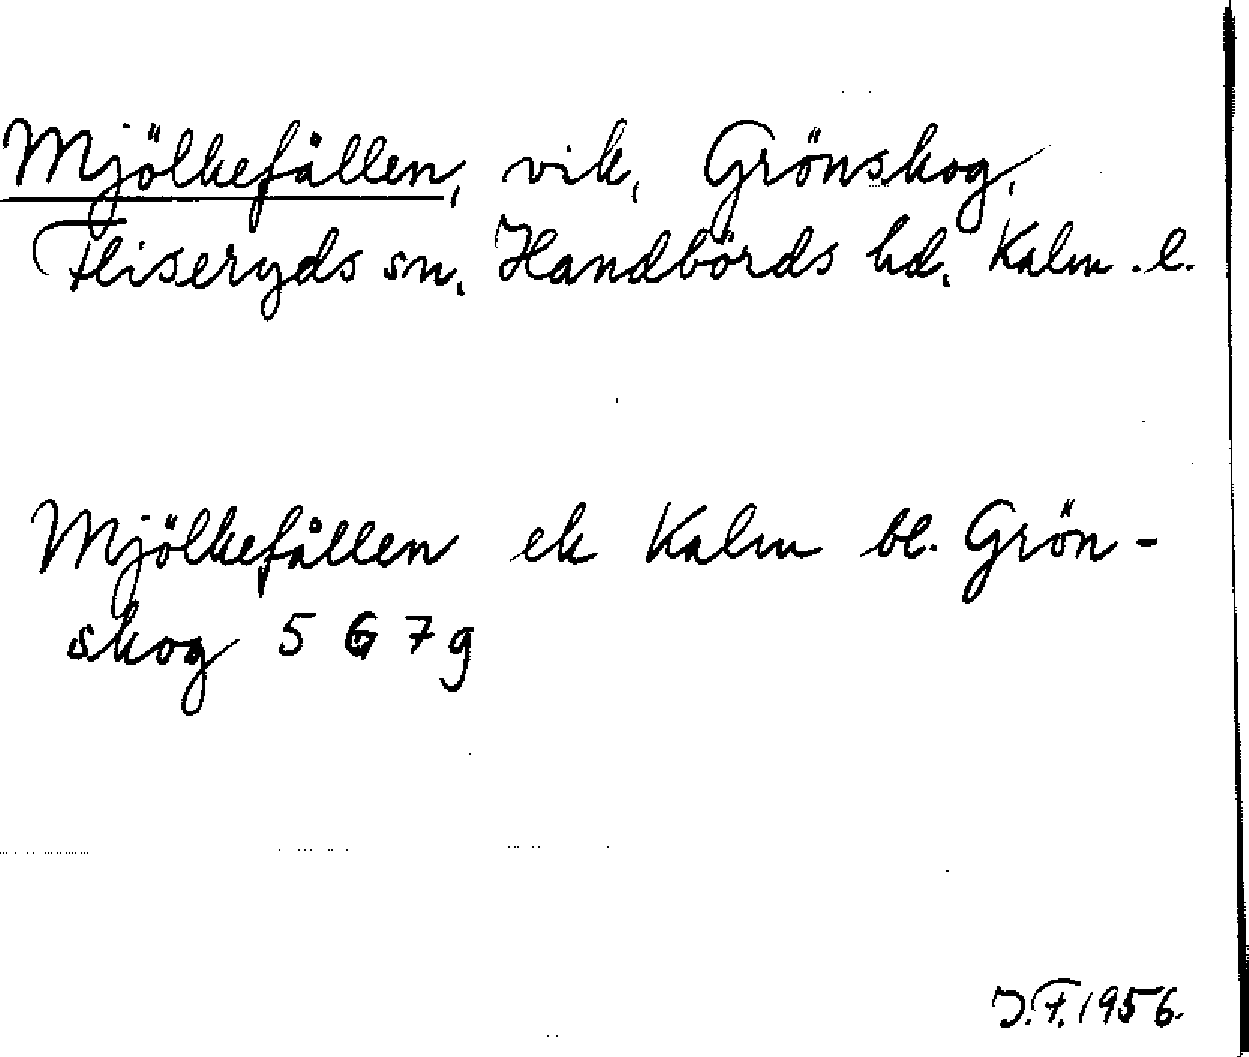 Mjölkefållen, vik, Grönskog,
Fliseryds sn, Handbörds hd, Kalm. l.
Mjölkefållen ek Kalm bl. Grön-
skog 5 G 7 g
J.F. 1956